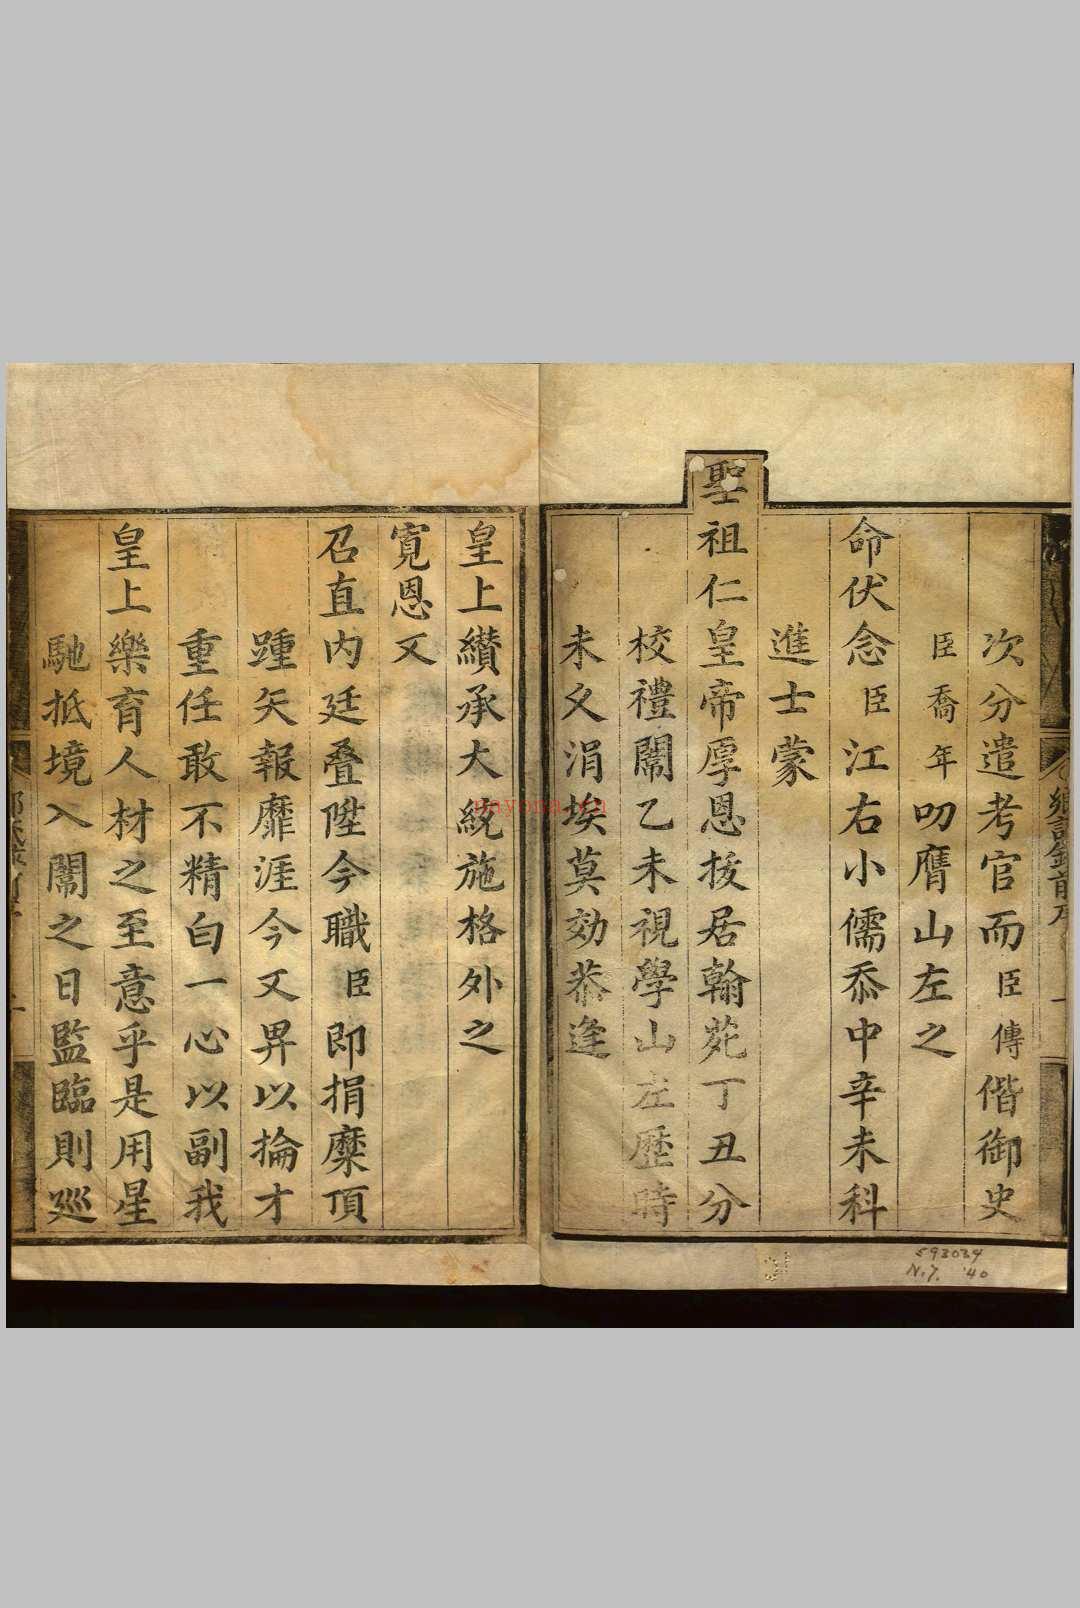 鄉試錄前序
次分遣考官而臣傳偕御史
臣喬年叨膺山左之
命伏念臣江右小儒忝中辛未科
進士蒙
聖祖仁皇帝厚恩拔居翰苑丁丑分
校禮闈乙未視學山左歷時
未久涓埃莫効恭逢
皇上纘承大統施格外之
寬恩又
召直內廷叠陞今職臣即捐糜頂
踵矢報靡涯今又畀以掄才
重任敢不精白一心以副我
皇上樂育人材之至意乎是用星
馳抵境入闈之日監臨則巡
593034
N.7. '40